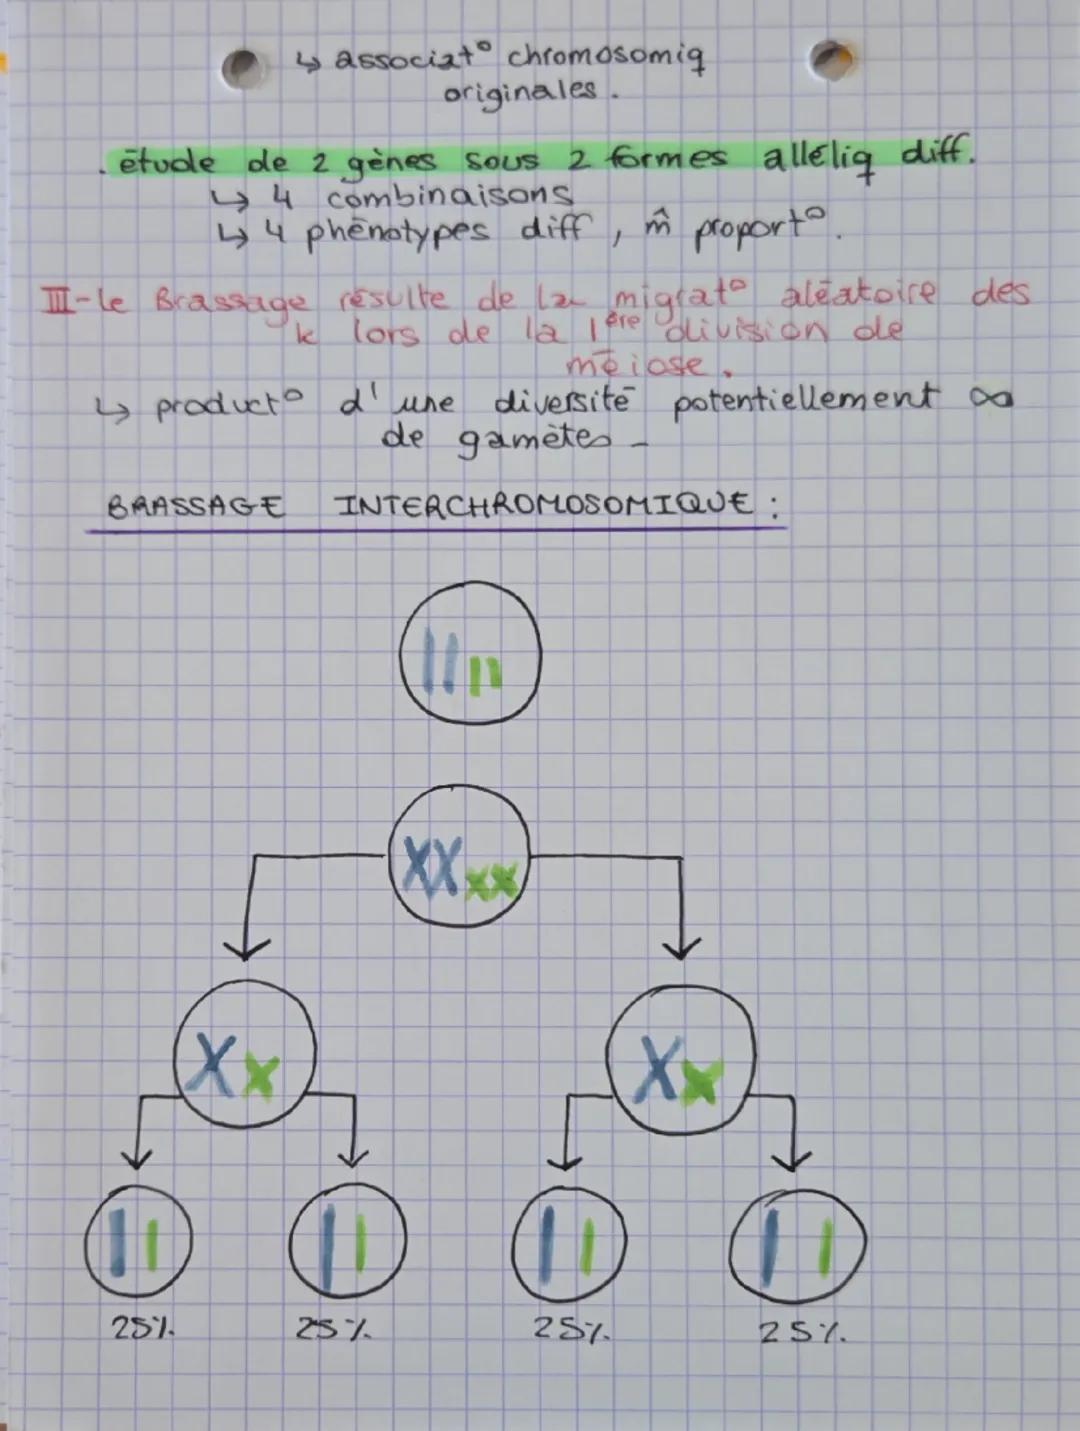 ↳ associat° chromosomiq
originales.
. étude de 2 gènes sous 2 formes alléliq diff.
↳ 4 combinaisons
↳ 4 phénotypes diff, m̂ proport°.
III-le Brassage résulte de la migrat° aléatoire des
k lors de la 1ère division de
méiose.
↳ product° d'une diversité potentiellement ∞
de gamètes -
BRASSAGE INTERCHROMOSOMIQUE :
25%. 25%. 25%. 25%.